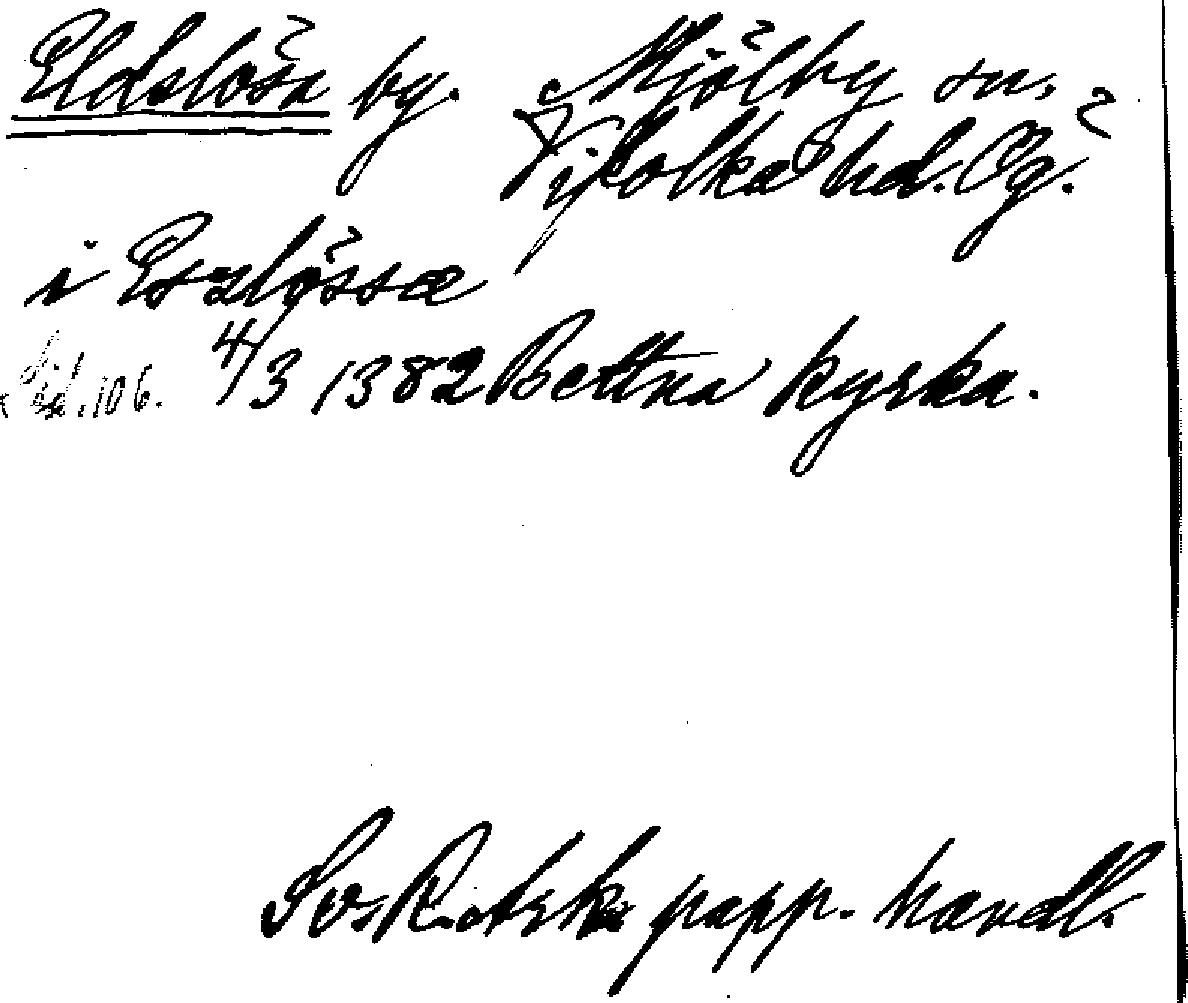 Eldslösa by. Mjölby sn.
Vifolka hd. Ög.
i Eszlössæ
Sid. 106. 4/3 1382 Bettna kyrka.
Sv. R. Ark. papp. handl.